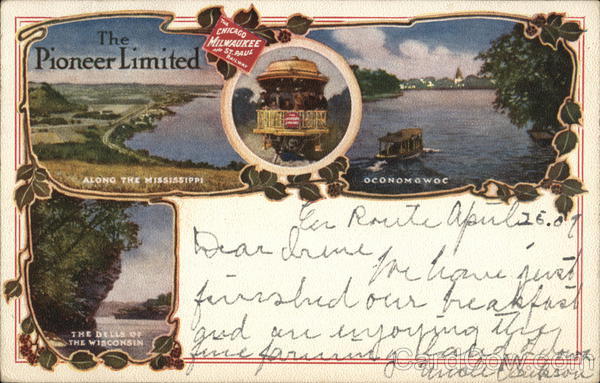 The
Pioneer Limited
THE
CHICAGO
MILWAUKEE
AND
ST. PAUL
RAILWAY
ALONG THE MISSISSIPPI
OCONOMOWOC
THE DELLS OF
THE WISCONSIN
Route April 26.09
Dear Irene
We have just
finished our breakfast
and an enjoying the
fine farming land of Iowa
Clarkson
CardCow.com